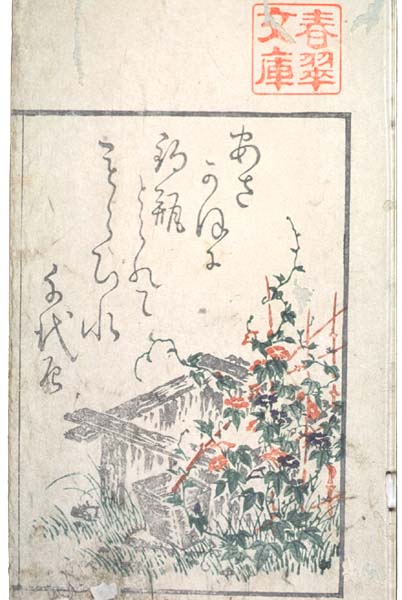 春翠
文庫
あさ
かほに
釣瓶
とられて
もらひ水
千代尼